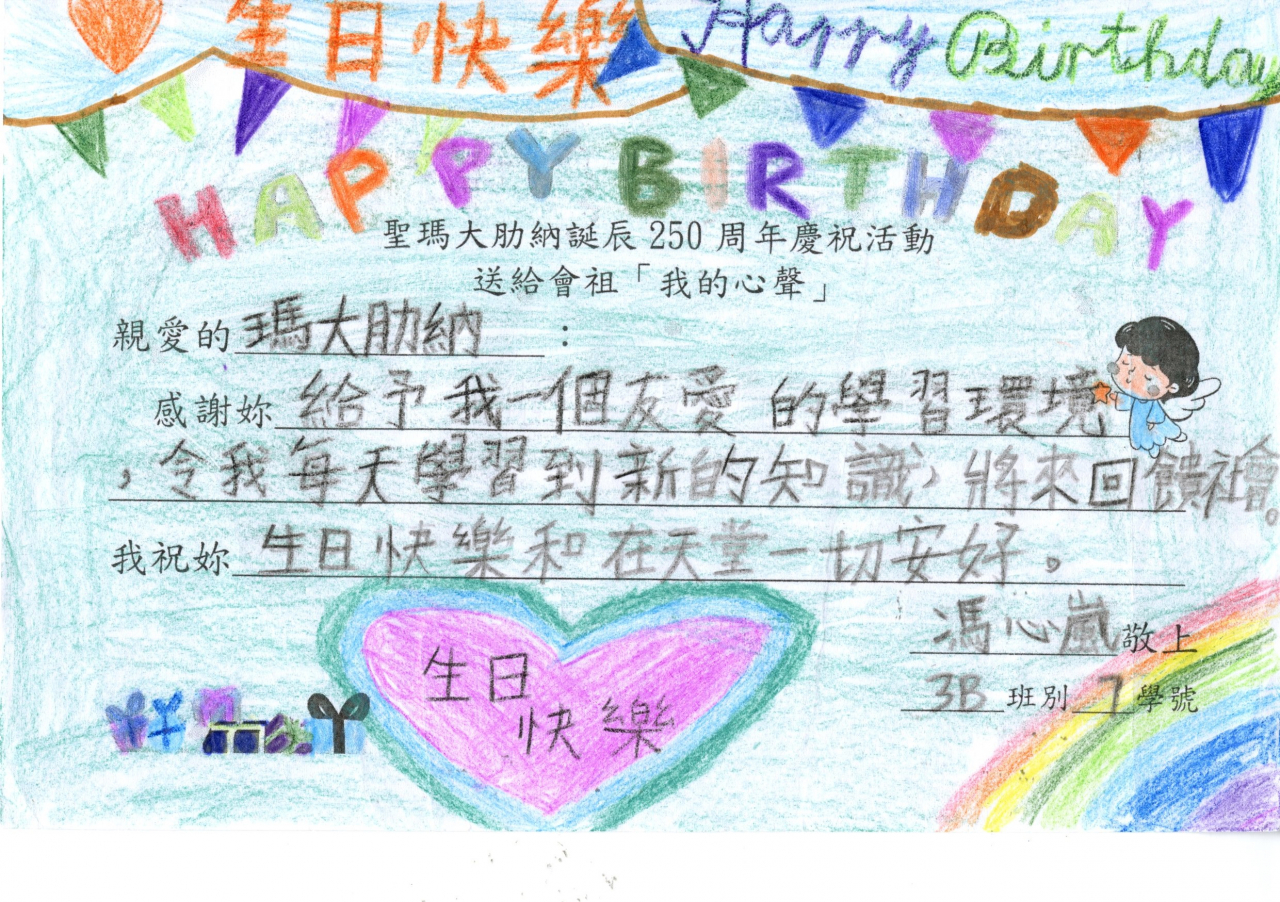 生日快樂 Happy Birthday
HAPPY BIRTHDAY
聖瑪大肋納誕辰 250 周年慶祝活動
送給會祖「我的心聲」
親愛的瑪大肋納：
感謝妳給予我一個友愛的學習環境
，令我每天學習到新的知識，將來回饋社會。
我祝妳生日快樂和在天堂一切安好。
馮心嵐敬上
3B 班別 7 學號
生日
快樂